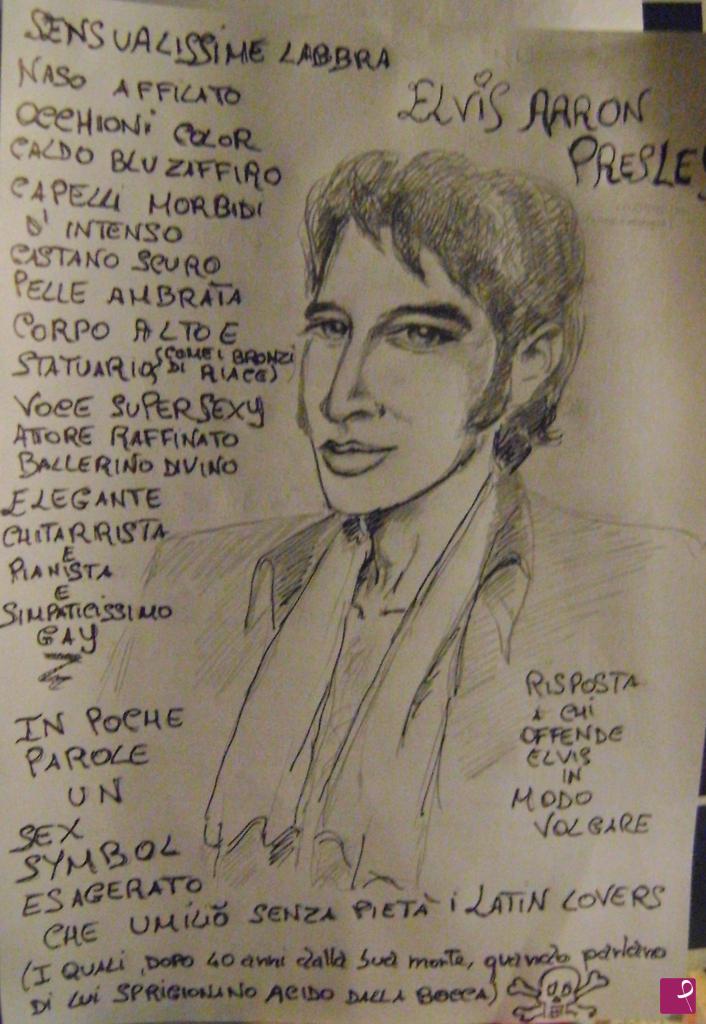 SENSUALISSIME LABBRA
NASO AFFILATO
OCCHIONI COLOR
CALDO BLU ZAFFIRO
CAPELLI MORBIDI
D'INTENSO
CASTANO SCURO
PELLE AMBRATA
CORPO ALTO E
STATUARIO (COME I BRONZI
DI RIACE)
VOCE SUPERSEXY
ATTORE RAFFINATO
BALLERINO DIVINO
ELEGANTE
CHITARRISTA
E
PIANISTA
E
SIMPATICISSIMO
GAY
IN POCHE
PAROLE
UN
SEX
SYMBOL
ESAGERATO
CHE UMILIÒ SENZA PIETÀ I LATIN LOVERS
(I QUALI, DOPO 40 anni dalla sua morte, quando parlano
DI LUI SPRIGIONANO ACIDO DALLA BOCCA)
ELVIS AARON
PRESLEY
RISPOSTA
A CHI
OFFENDE
ELVIS
IN
MODO
VOLGARE